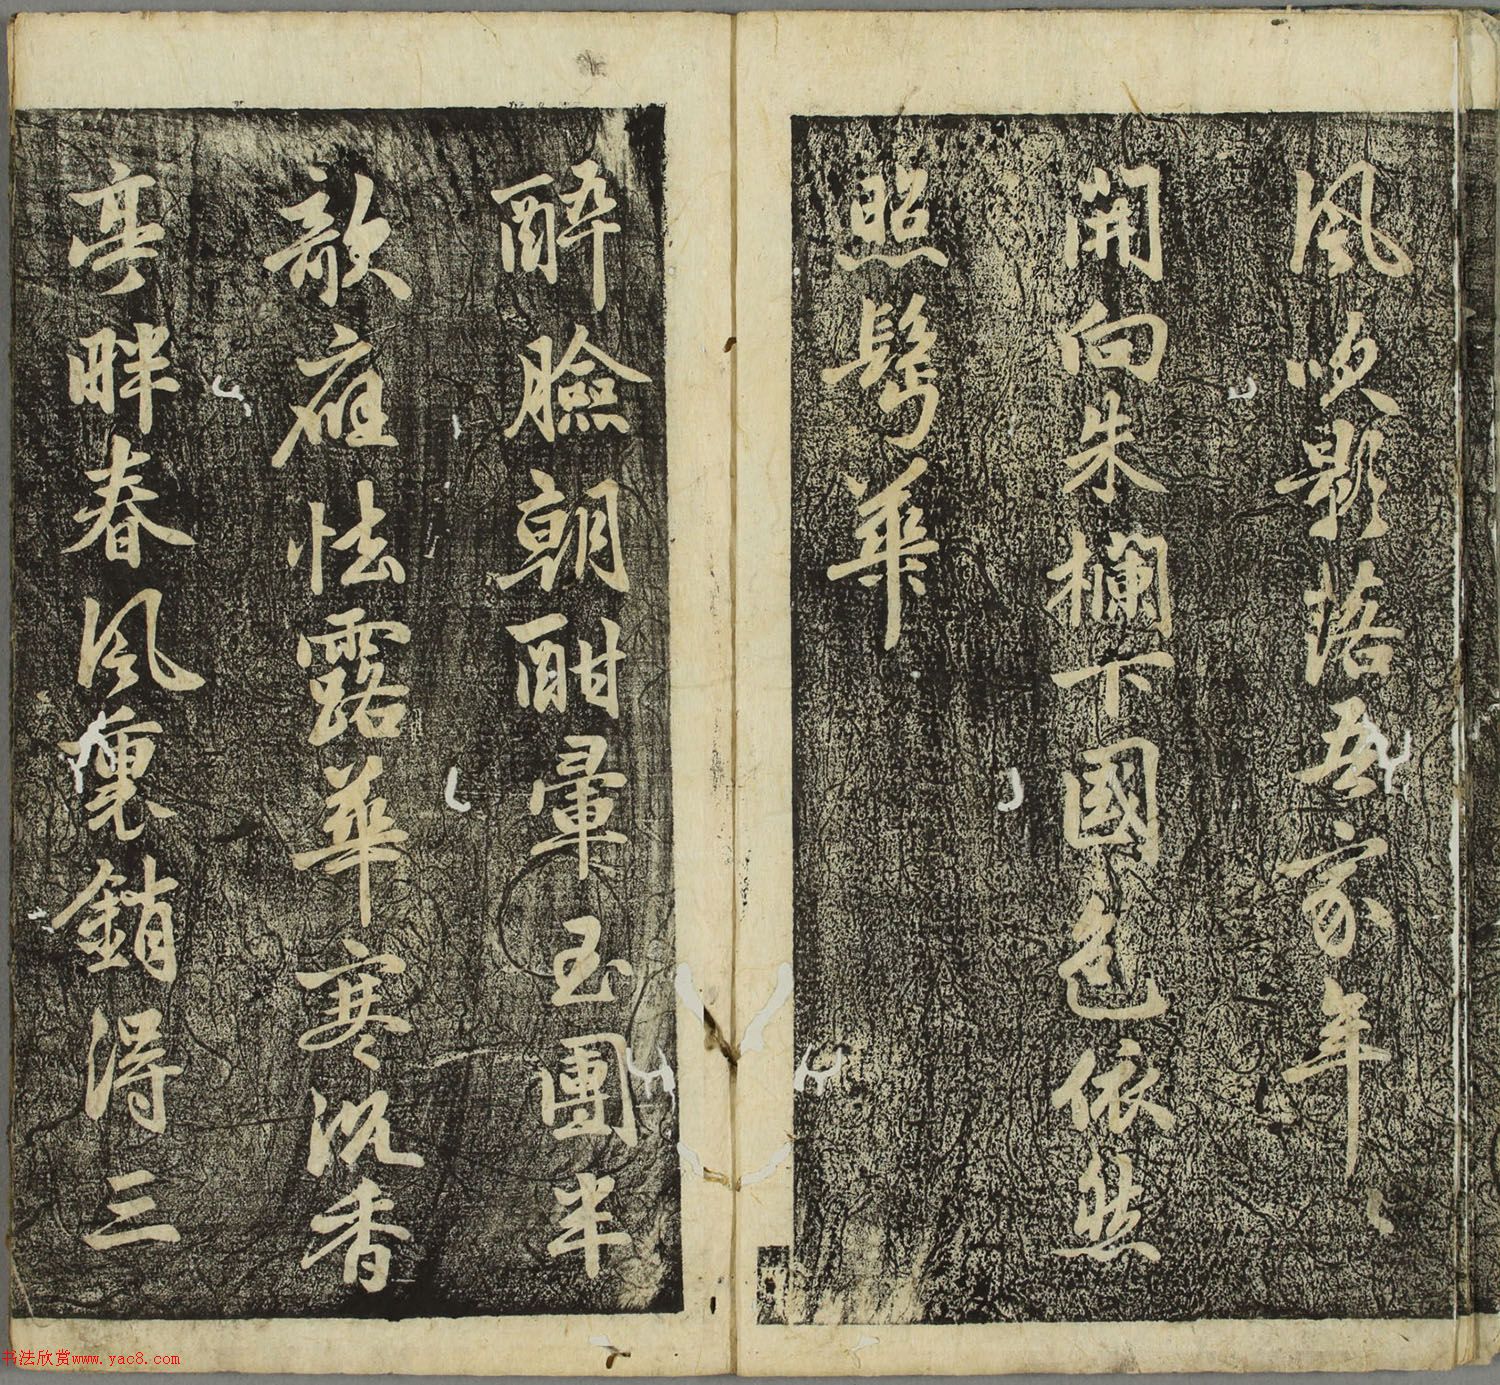 風吹影落吾家年〻
開向朱欄下國色依然
照鬢華
醉臉朝酣暈玉團半
欹應怯露華寒沉香
亭畔春風裏銷得三
书法欣赏www.yac8.com